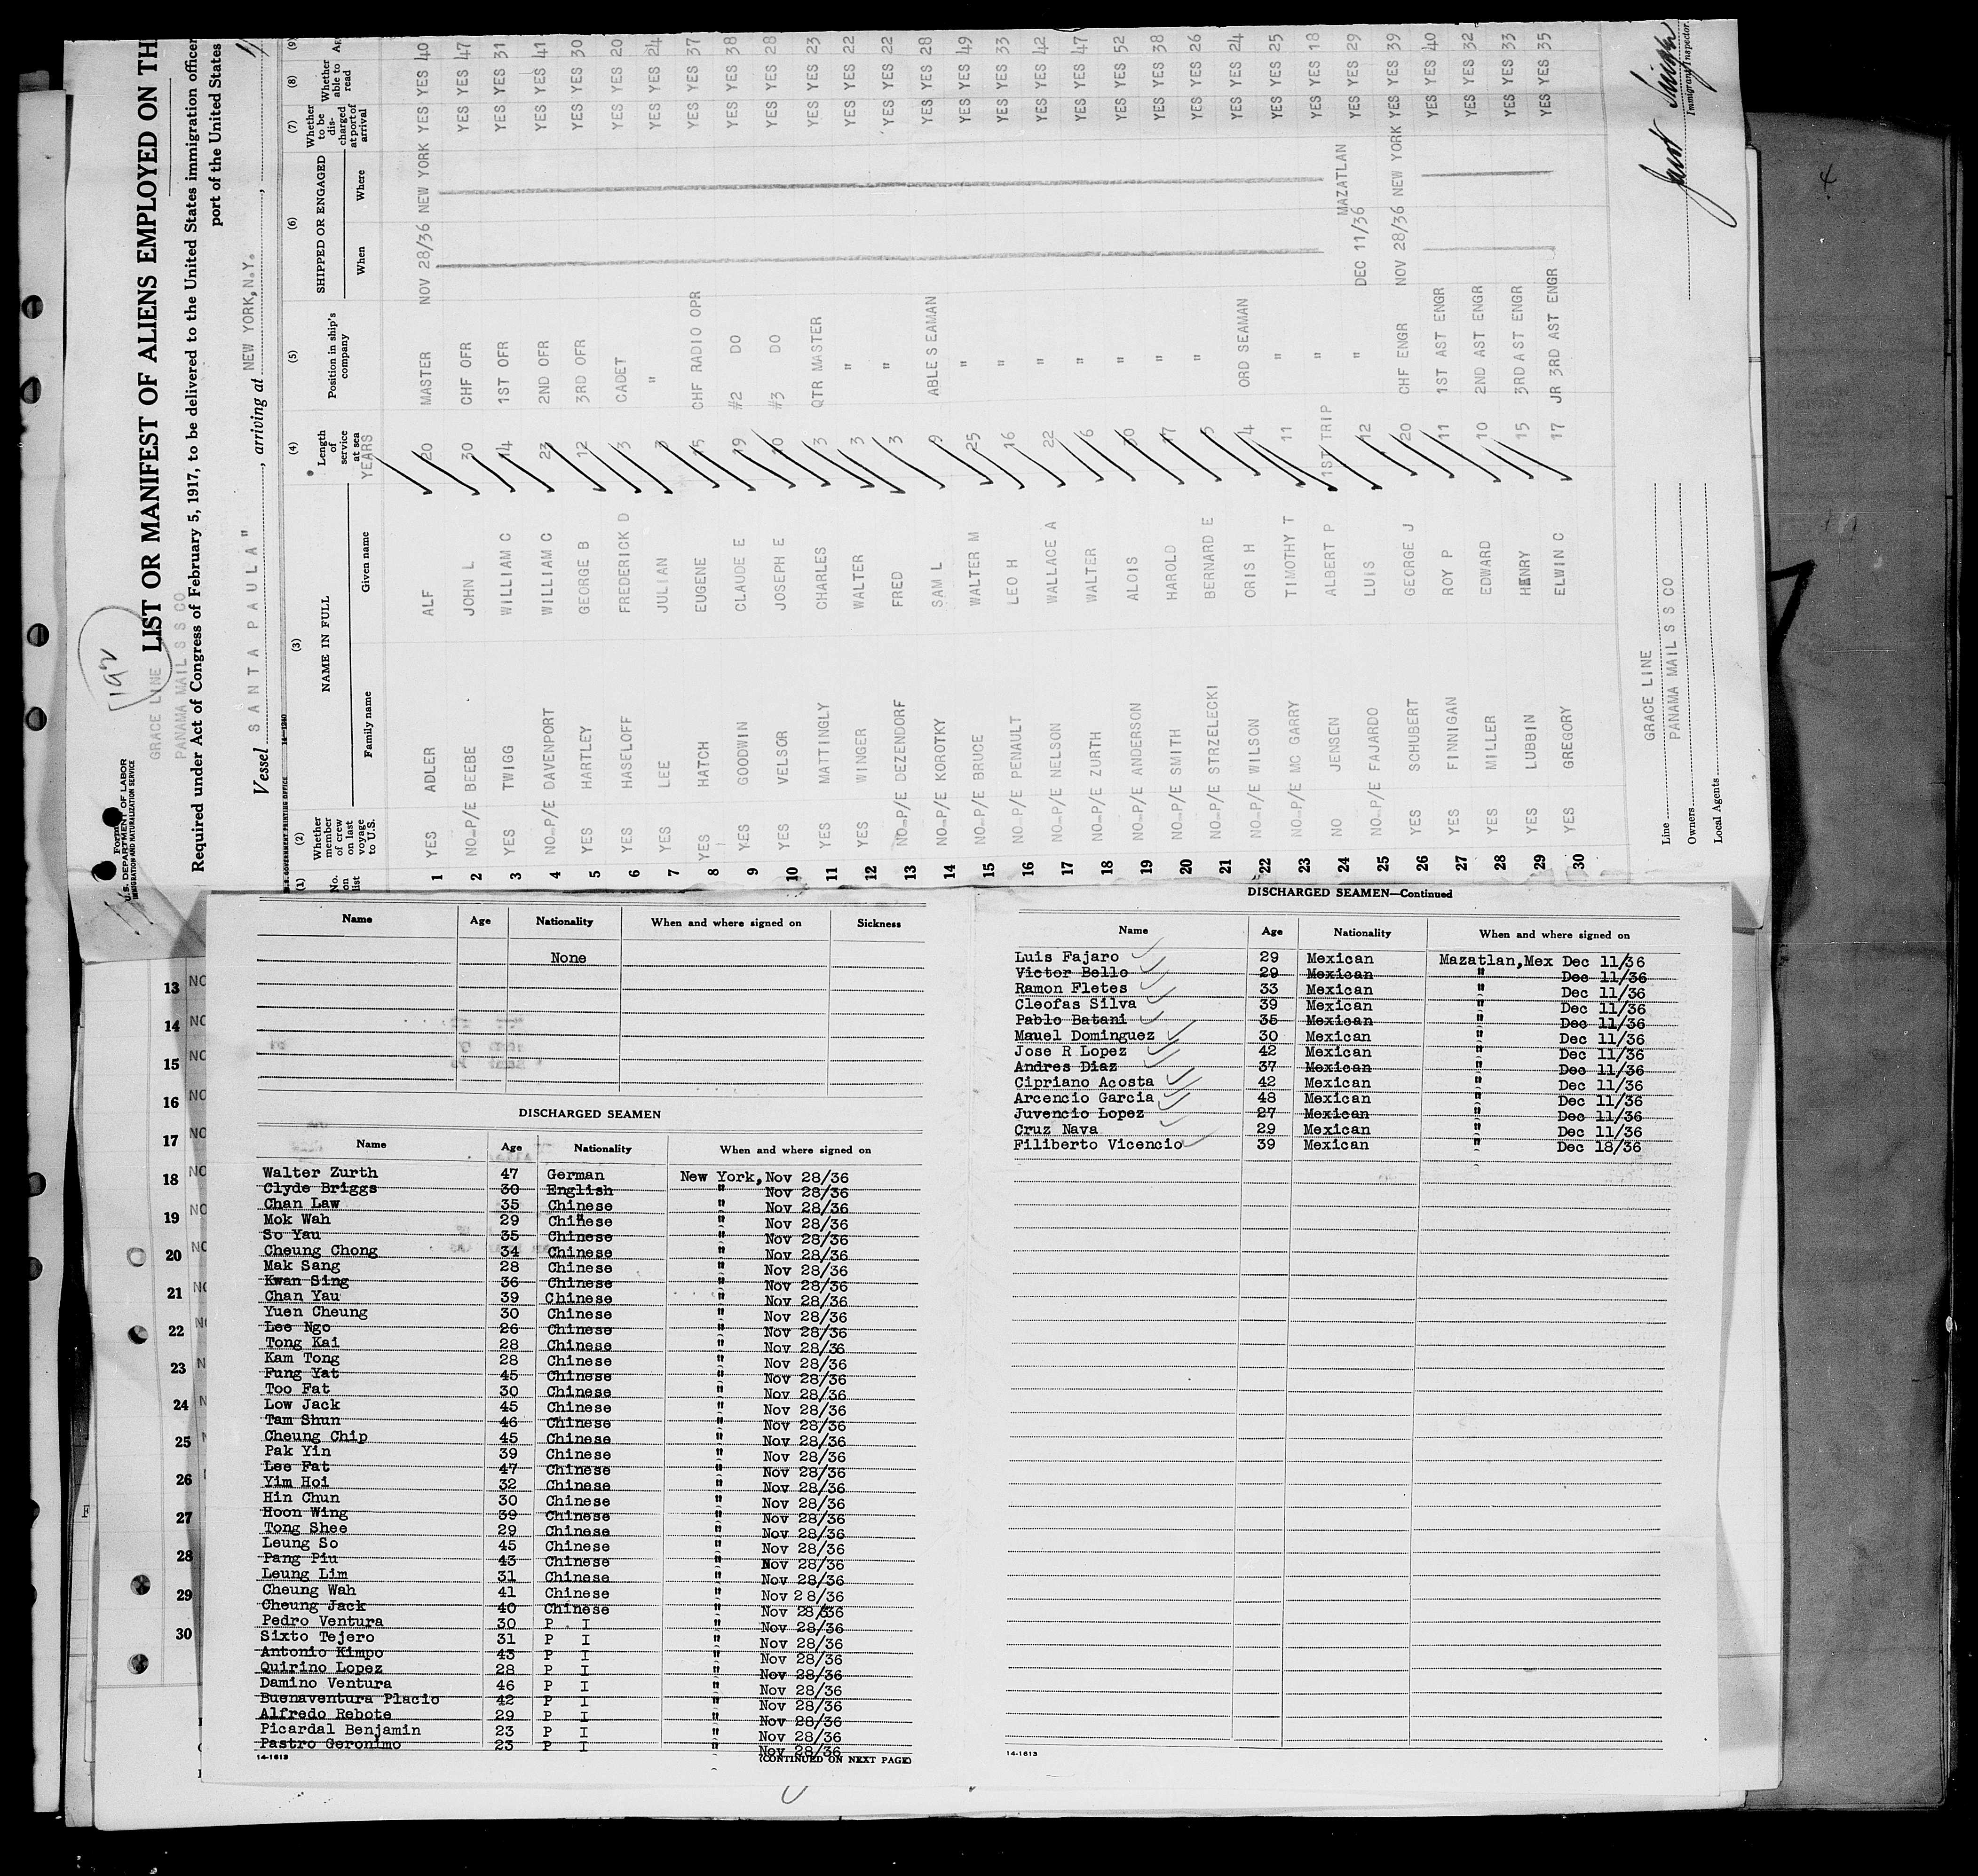 192
Form
U. S. DEPARTMENT OF LABOR
IMMIGRATION AND NATURALIZATION SERVICE
GRACE LINE
PANAMA MAIL S S CO
LIST OR MANIFEST OF ALIENS EMPLOYED ON TH
Required under Act of Congress of February 5, 1917, to be delivered to the United States immigration officer
port of the United States
Vessel SANTA PAULA", arriving at NEW YORK, N.Y.,
U. S. GOVERNMENT PRINTING OFFICE 14-1240
(1) (2) (3) (4) (5) (6) (7) (8) (9)
No. on list
Whether member of crew on last voyage to U.S.
NAME IN FULL
Family name Given name
Length of service at sea
YEARS
Position in ship's company
SHIPPED OR ENGAGED
When Where
Whether to be discharged at port of arrival
Whether able to read
Ag
1 YES ADLER ALF 20 MASTER NOV 28/36 NEW YORK YES YES 40
2 NO-P/E BEEBE JOHN L 30 CHF OFR YES YES 47
3 YES TWIGG WILLIAM C 14 1ST OFR YES YES 31
4 NO-P/E DAVENPORT WILLIAM C 23 2ND OFR YES YES 41
5 YES HARTLEY GEORGE B 12 3RD OFR YES YES 30
6 YES HASELOFF FREDERICK D 3 CADET YES YES 20
7 YES LEE JULIAN 3 " YES YES 24
8 YES HATCH EUGENE 15 CHF RADIO OPR YES YES 37
9 YES GOODWIN CLAUDE E 19 #2 DO YES YES 38
10 YES VELSOR JOSEPH E 10 #3 DO YES YES 28
11 YES MATTINGLY CHARLES 3 QTR MASTER YES YES 23
12 YES WINGER WALTER 3 " YES YES 22
13 NO-P/E DEZENDORF FRED 3 " YES YES 22
14 NO-P/E KOROTKY SAM L 9 ABLE SEAMAN YES YES 28
15 NO-P/E BRUCE WALTER M 25 " YES YES 49
16 NO-P/E PENAULT LEO H 16 " YES YES 33
17 NO-P/E NELSON WALLACE A 22 " YES YES 42
18 NO-P/E ZURTH WALTER 6 " YES YES 47
19 NO-P/E ANDERSON ALOIS 30 " YES YES 52
20 NO-P/E SMITH HAROLD 17 " YES YES 38
21 NO-P/E STRZELECKI BERNARD E 5 " YES YES 26
22 NO-P/E WILSON ORIS H 4 ORD SEAMAN YES YES 24
23 NO-P/E MC GARRY TIMOTHY T 11 " YES YES 25
24 NO JENSEN ALBERT P 1ST TRIP " YES YES 18
25 NO-P/E FAJARDO LUIS 12 " DEC 11/36 MAZATLAN YES YES 29
26 YES SCHUBERT GEORGE J 20 CHF ENGR NOV 28/36 NEW YORK YES YES 39
27 YES FINNIGAN ROY P 11 1ST AST ENGR YES YES 40
28 YES MILLER EDWARD 10 2ND AST ENGR YES YES 32
29 YES LUBBIN HENRY 15 3RD AST ENGR YES YES 33
30 YES GREGORY ELWIN C 17 JR 3RD AST ENGR YES YES 35
Line GRACE LINE
Owners PANAMA MAIL S S CO
Local Agents
Immigrant Inspector.
13 NO
14 NO
15 NO
16 NO
17 NO
18 NO
19 NO
20 NO
21 NO
22
23 N
24 N
25
26
27
28
29
30
Name Age Nationality When and where signed on Sickness
None
DISCHARGED SEAMEN
Name Age Nationality When and where signed on
Walter Zurth 47 German New York, Nov 28/36
Clyde Briggs 30 English " Nov 28/36
Chan Law 35 Chinese " Nov 28/36
Mok Wah 29 Chinese " Nov 28/36
So Yau 35 Chinese " Nov 28/36
Cheung Chong 34 Chinese " Nov 28/36
Mak Sang 28 Chinese " Nov 28/36
Kwan Sing 36 Chinese " Nov 28/36
Chan Yau 39 Chinese " Nov 28/36
Yuen Cheung 30 Chinese " Nov 28/36
Lee Ngo 26 Chinese " Nov 28/36
Tong Kai 28 Chinese " Nov 28/36
Kam Tong 28 Chinese " Nov 28/36
Fung Yat 45 Chinese " Nov 28/36
Too Fat 30 Chinese " Nov 28/36
Low Jack 45 Chinese " Nov 28/36
Tam Shun 46 Chinese " Nov 28/36
Cheung Chip 45 Chinese " Nov 28/36
Pak Yin 39 Chinese " Nov 28/36
Lee Fat 47 Chinese " Nov 28/36
Yim Hoi 32 Chinese " Nov 28/36
Hin Chun 30 Chinese " Nov 28/36
Hoon Wing 39 Chinese " Nov 28/36
Tong Shee 29 Chinese " Nov 28/36
Leung So 45 Chinese " Nov 28/36
Pang Piu 43 Chinese " Nov 28/36
Leung Lim 31 Chinese " Nov 28/36
Cheung Wah 41 Chinese " Nov 28/36
Cheung Jack 40 Chinese " Nov 28/36
Pedro Ventura 30 P I " Nov 28/36
Sixto Tejero 31 P I " Nov 28/36
Antonio Kimpo 43 P I " Nov 28/36
Quirino Lopez 28 P I " Nov 28/36
Damino Ventura 46 P I " Nov 28/36
Buenaventura Placio 42 P I " Nov 28/36
Alfredo Rebote 29 P I " Nov 28/36
Picardal Benjamin 23 P I " Nov 28/36
Pastro Geronimo 23 P I " Nov 28/36
14-1613 (CONTINUED ON NEXT PAGE)
DISCHARGED SEAMEN—Continued
Name Age Nationality When and where signed on
Luis Fajaro 29 Mexican Mazatlan, Mex Dec 11/36
Victor Bello 29 Mexican " Dec 11/36
Ramon Fletes 33 Mexican " Dec 11/36
Cleofas Silva 39 Mexican " Dec 11/36
Pablo Batani 35 Mexican " Dec 11/36
Mauel Dominguez 30 Mexican " Dec 11/36
Jose R Lopez 42 Mexican " Dec 11/36
Andres Diaz 37 Mexican " Dec 11/36
Cipriano Acosta 42 Mexican " Dec 11/36
Arcencio Garcia 48 Mexican " Dec 11/36
Juvencio Lopez 27 Mexican " Dec 11/36
Cruz Nava 29 Mexican " Dec 11/36
Filiberto Vicencio 39 Mexican " Dec 18/36
14-1613